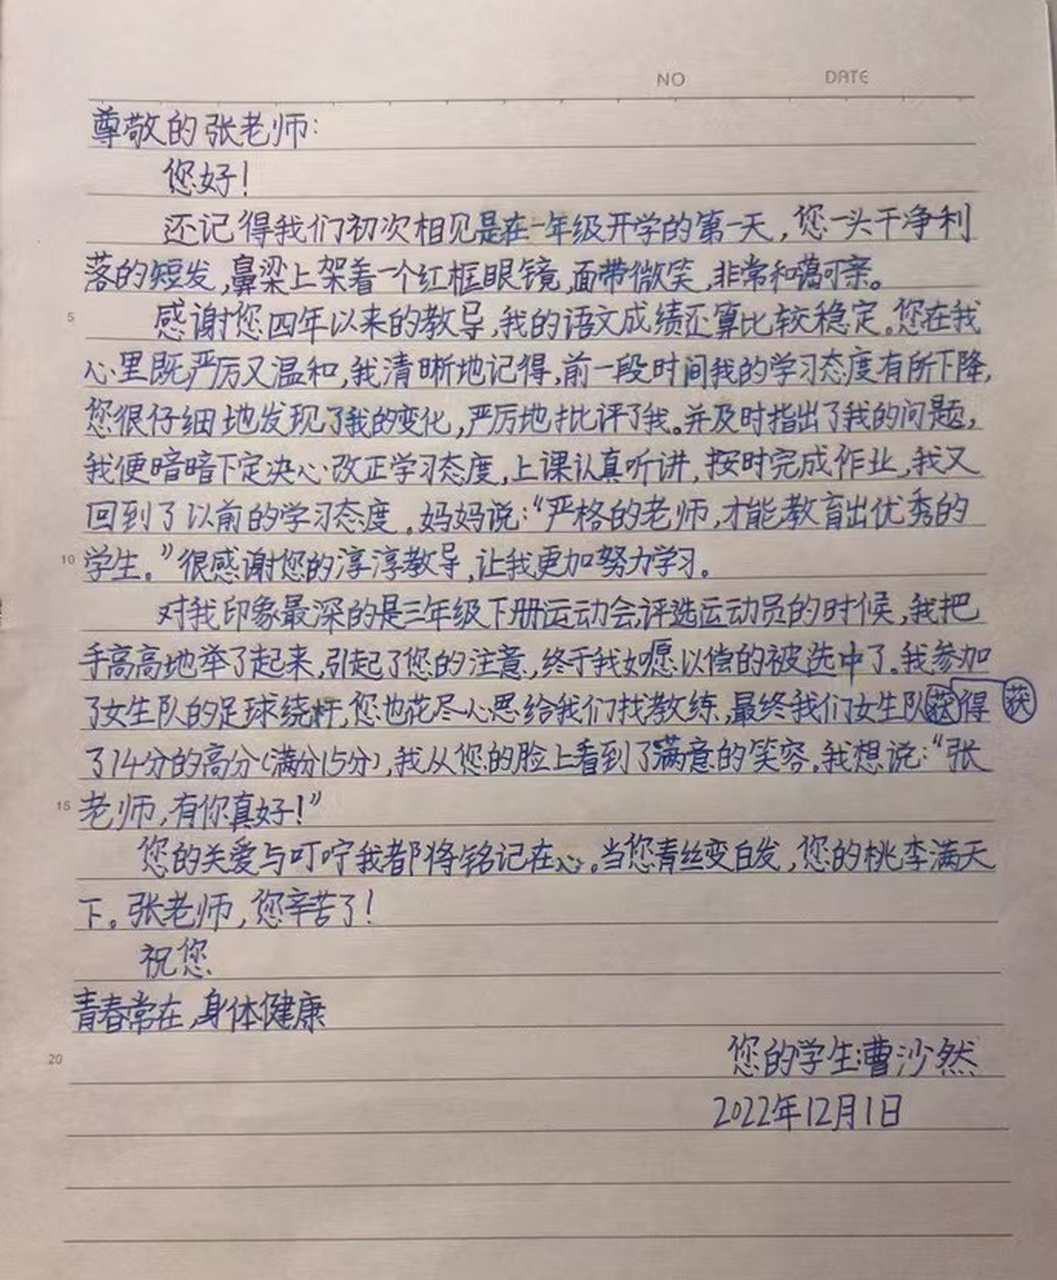 NO DATE
尊敬的张老师:
您好!
还记得我们初次相见是在一年级开学的第一天,您一头干净利
落的短发,鼻梁上架着一个红框眼镜,面带微笑,非常和蔼可亲。
5 感谢您四年以来的教导,我的语文成绩还算比较稳定。您在我
心里既严厉又温和,我清晰地记得,前一段时间我的学习态度有所下降,
您很仔细地发现了我的变化,严厉地批评了我。并及时指出了我的问题,
我便暗暗下定决心改正学习态度,上课认真听讲,按时完成作业,我又
回到了以前的学习态度。妈妈说:“严格的老师,才能教育出优秀的
10 学生。”很感谢您的淳淳教导,让我更加努力学习。
对我印象最深的是三年级下册运动会评选运动员的时候,我把
手高高地举了起来,引起了您的注意,终于我如愿以偿的被选中了。我参加
了女生队的足球绕杆,您也花尽心思给我们找教练,最终我们女生队获得 获
了14分的高分(满分15分),我从您的脸上看到了满意的笑容。我想说:“张
15 老师,有你真好!”
您的关爱与叮咛我都将铭记在心。当您青丝变白发,您的桃李满天
下。张老师,您辛苦了!
祝您
青春常在,身体健康
20 您的学生:曹沙然
2022年12月1日